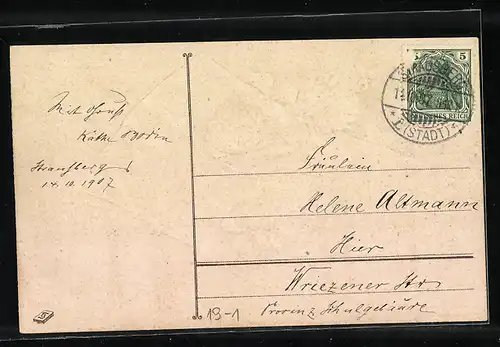 Mit Gruß
Käthe Boldin
Strausberg
14.10.1907
Fräulein
Helene Altmann
Hier
Wriezener Str.
Provinz Schulgebäude
13-1
5
REICH
(STADT)